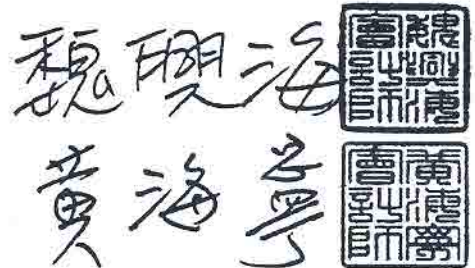 魏興海
魏興海會計師
黃海寧
黃海寧會計師